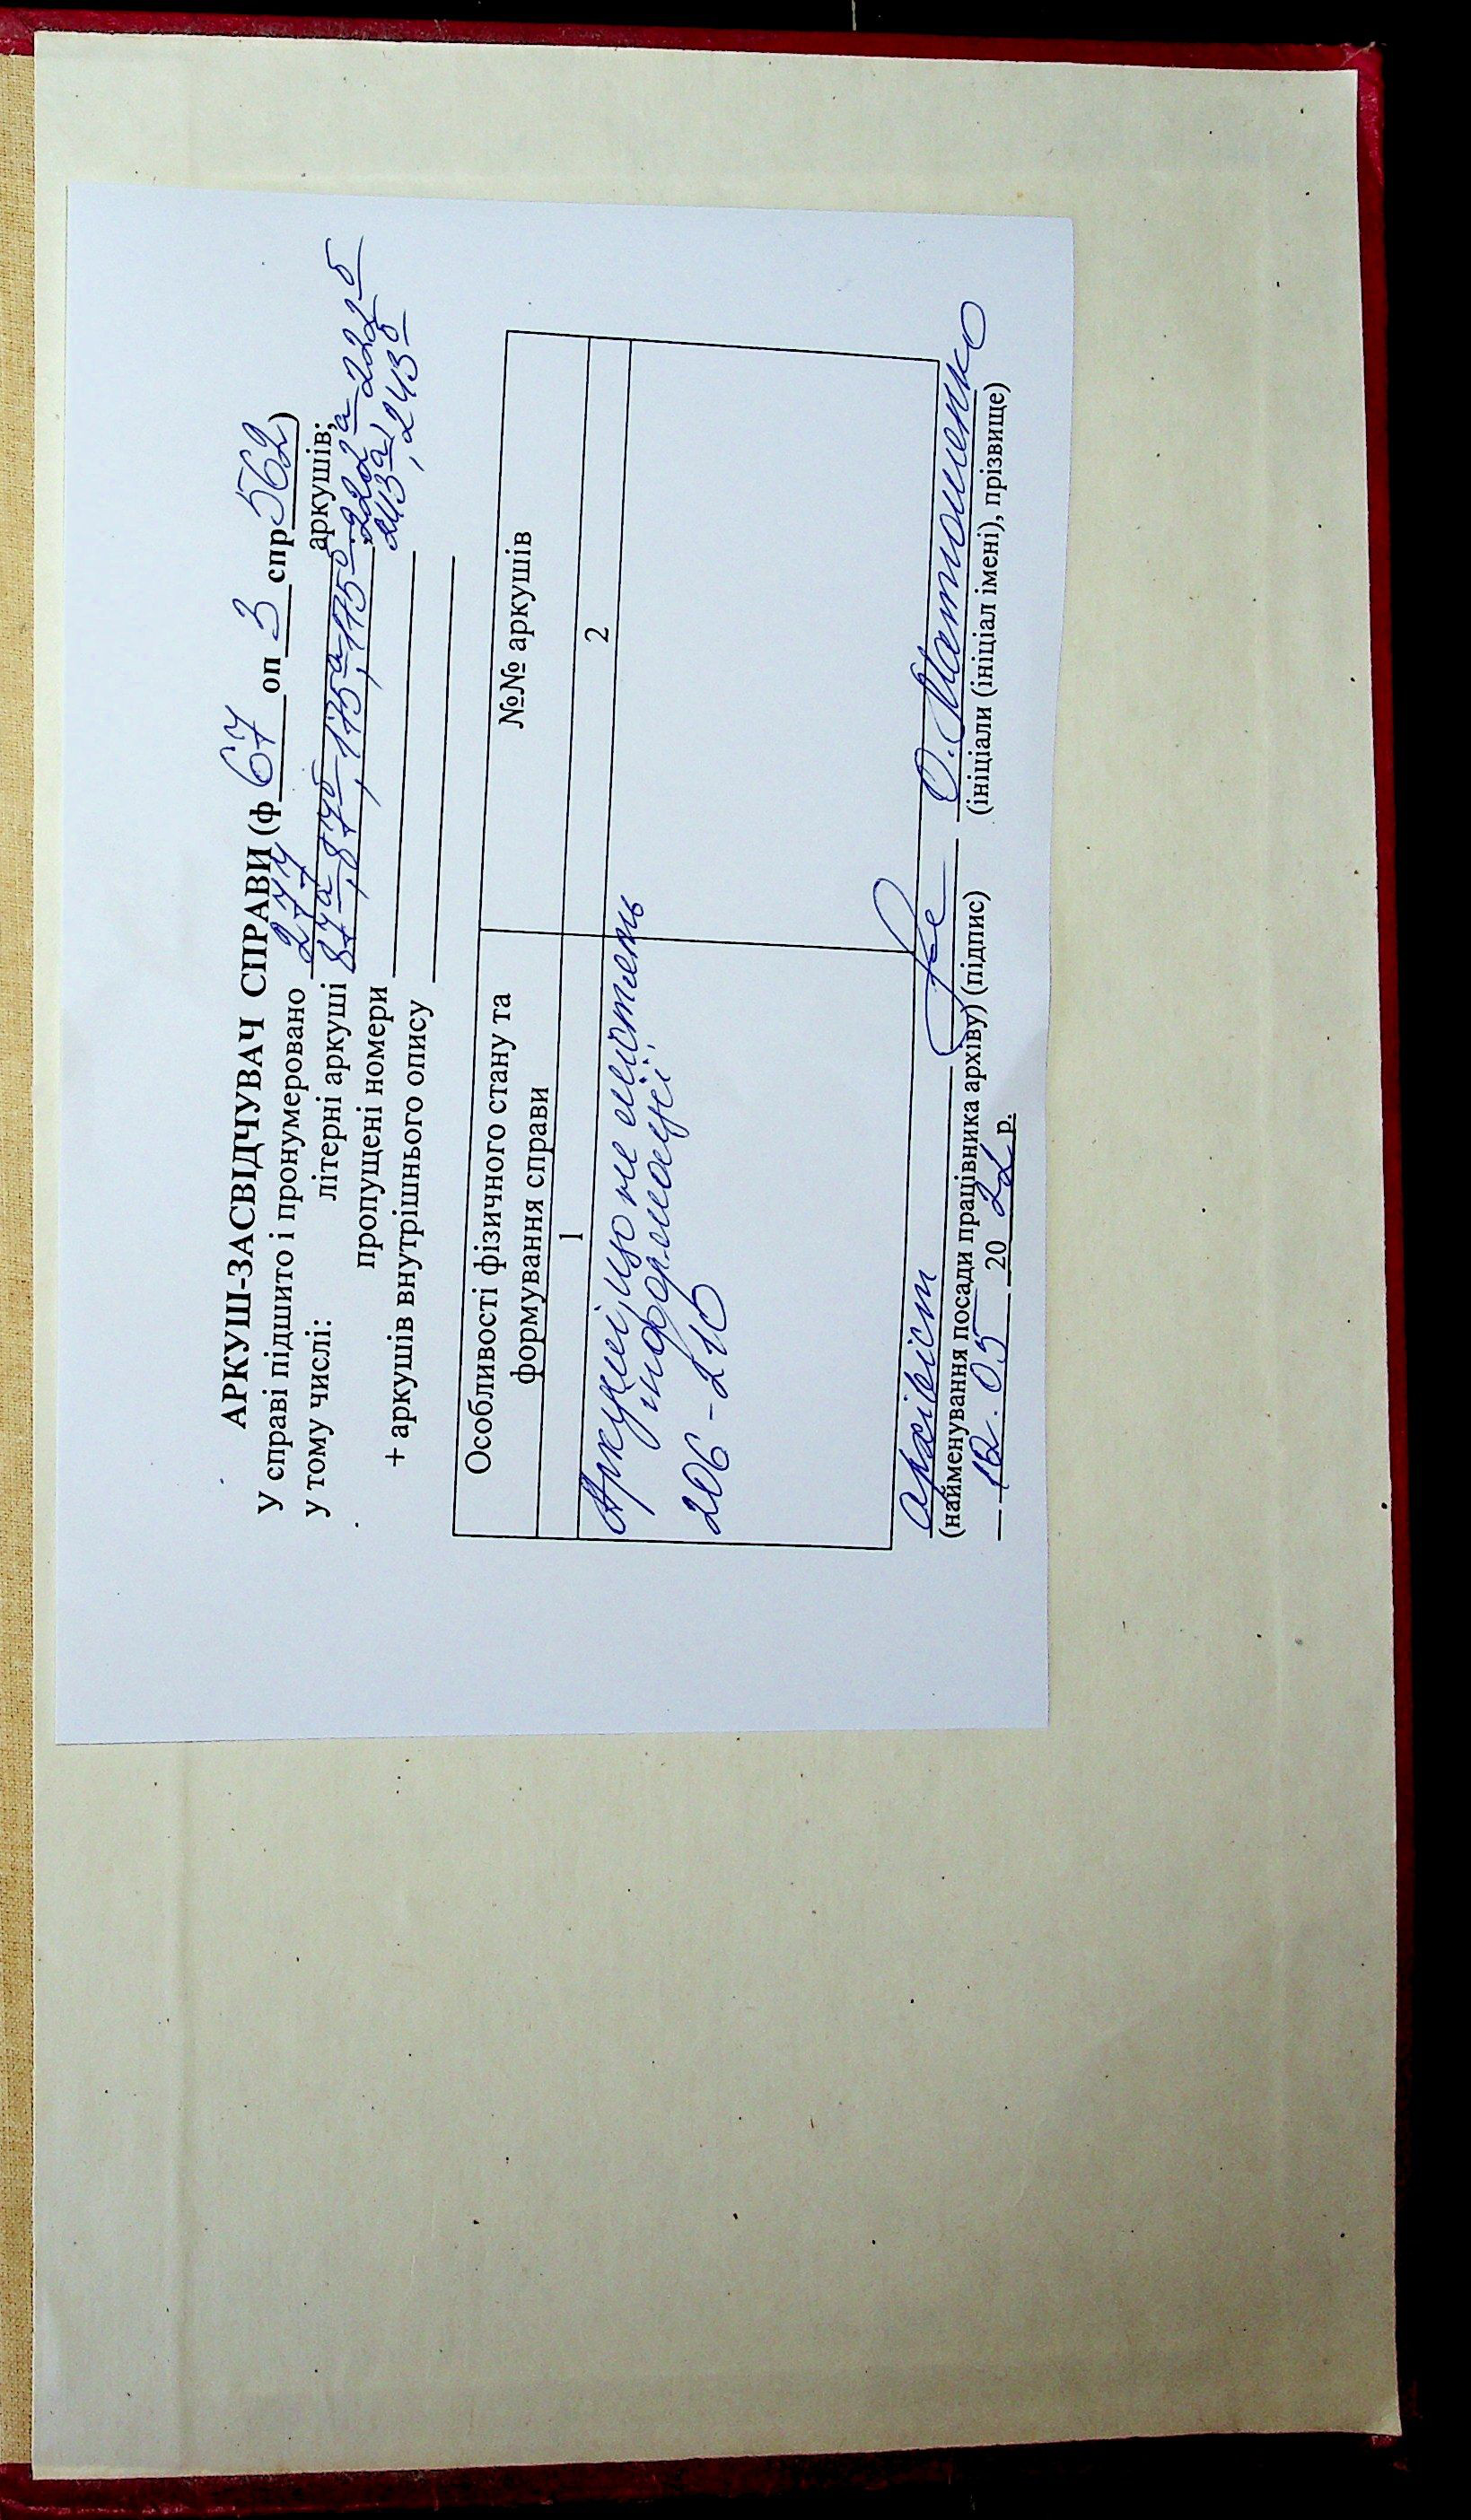 АРКУШ-ЗАСВІДЧУВАЧ СПРАВИ (ф 67 оп 3 спр 562)
У справі підшито і пронумеровано 277 аркушів;
у тому числі: літерні аркуші 87а, 87б, 175а, 175б, 222а, 222б
пропущені номери 243а, 243б
+ аркушів внутрішнього опису
Особливості фізичного стану та формування справи
№№ аркушів
1
2
Аркуші, що не містять
інформації
206 - 210
архівіст О. Матюшенко
(найменування посади працівника архіву) (підпис) (ініціали (ініціал імені), прізвище)
12.05 2022 р.